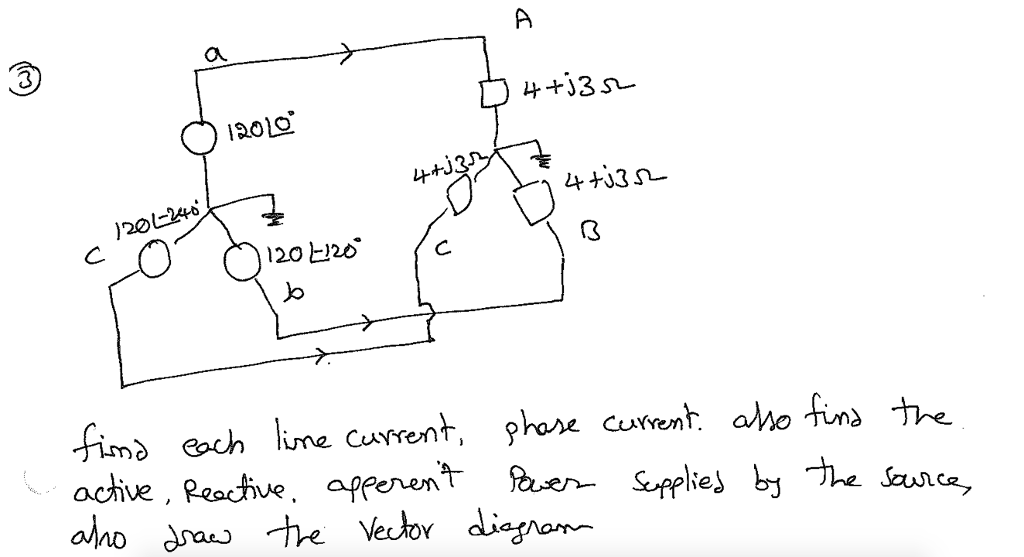 A
a
③
4+j3Ω
120∠0°
4+j3Ω
4+j3Ω
120∠-240°
B
C
120∠-120°
C
b
find each line current, phase current. also find the
active, Reactive, apperent Power Supplied by the source,
also draw the Vector diagram